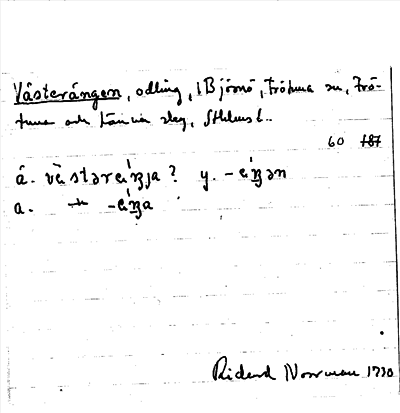 Västerängen, odling, i Björnö, Frötuna sn, Frö-
tuna och Länna slg, Sthlms l.
60 187
ä. vèstəreŋja? y. -eŋən
a. -eŋa
Rickard Norrman 1930